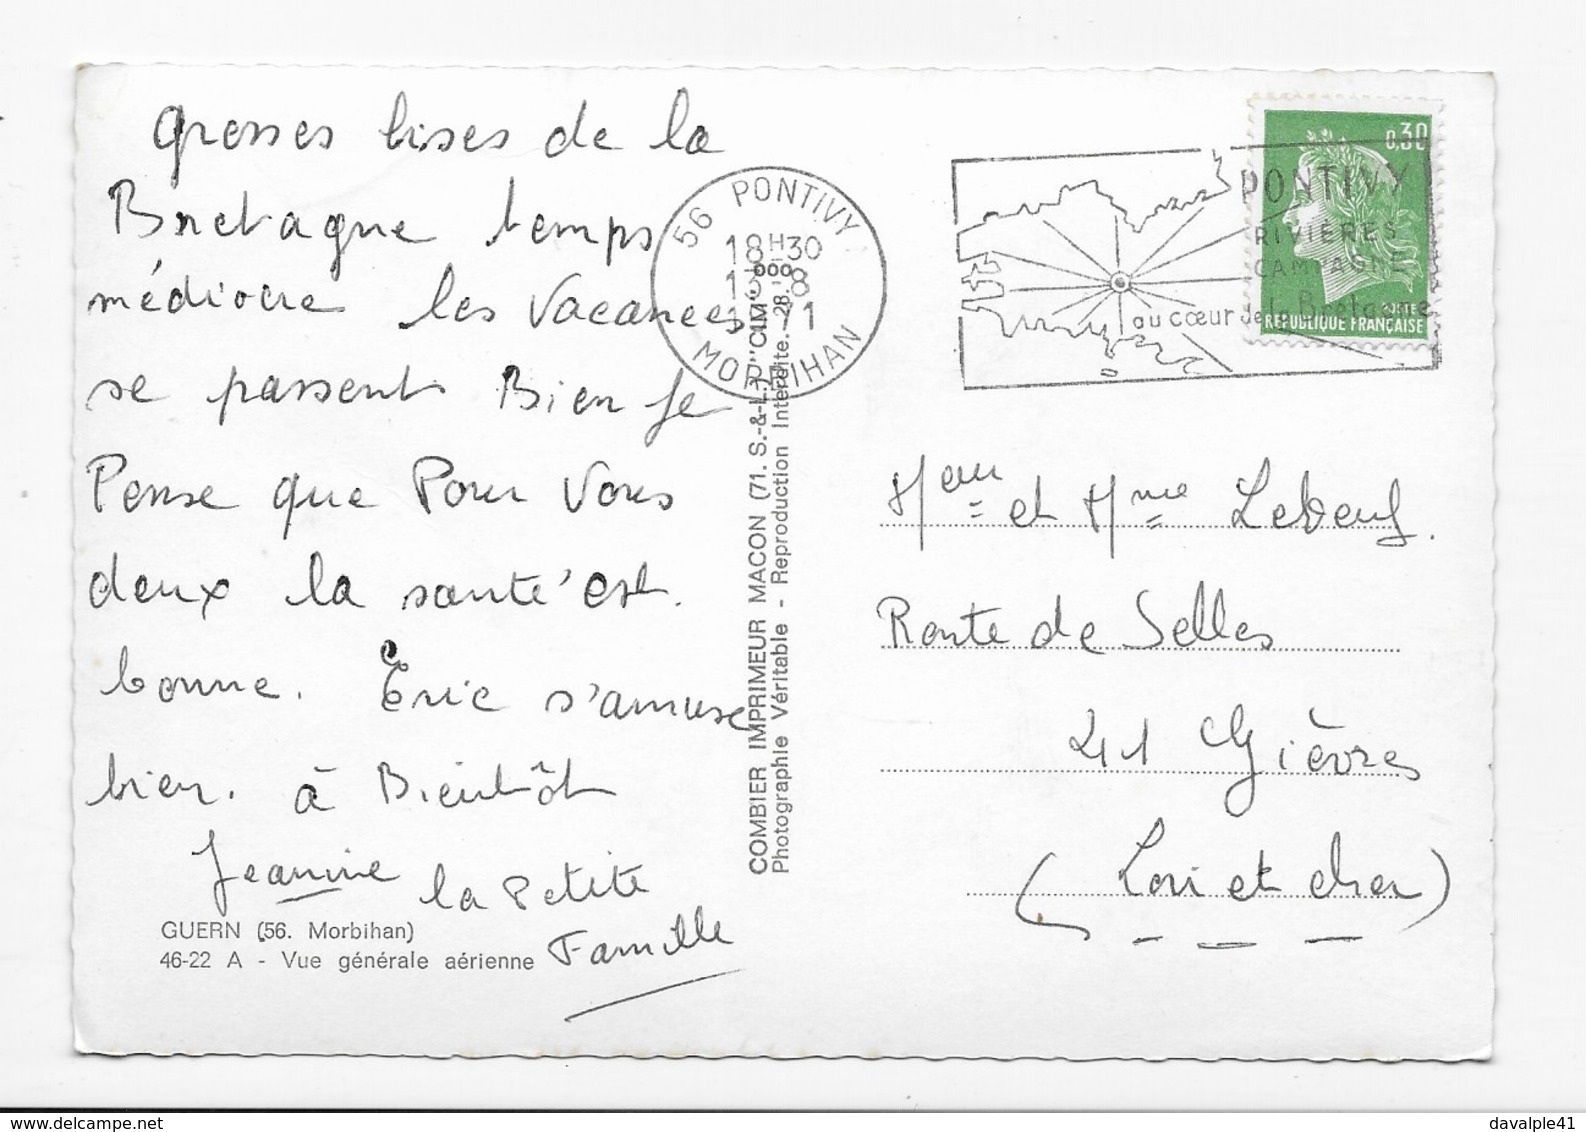 Grosses bises de la
Bretagne temps
médiocre les vacances
se passent Bien Je
Pense que Pour Vous
deux la santé est
bonne. Eric s'amuse
bien. à Bientôt
Jeannine la Petite
Famille
GUERN (56. Morbihan)
46-22 A - Vue générale aérienne
COMBIER IMPRIMEUR MACON (71. S.-&-L.) "CIM"
Photographie Véritable - Reproduction Interdite.
56 PONTIVY
18H30
13-8
1971
MORBIHAN
PONTIVY
RIVIERES
CAMPAGNE
au cœur de la Bretagne
0,30
POSTES
REPUBLIQUE FRANÇAISE
Meur et Mme Lebeuf.
Route de Selles
41 Gièvres
(Loir et cher)
delcampe.net
davalple41